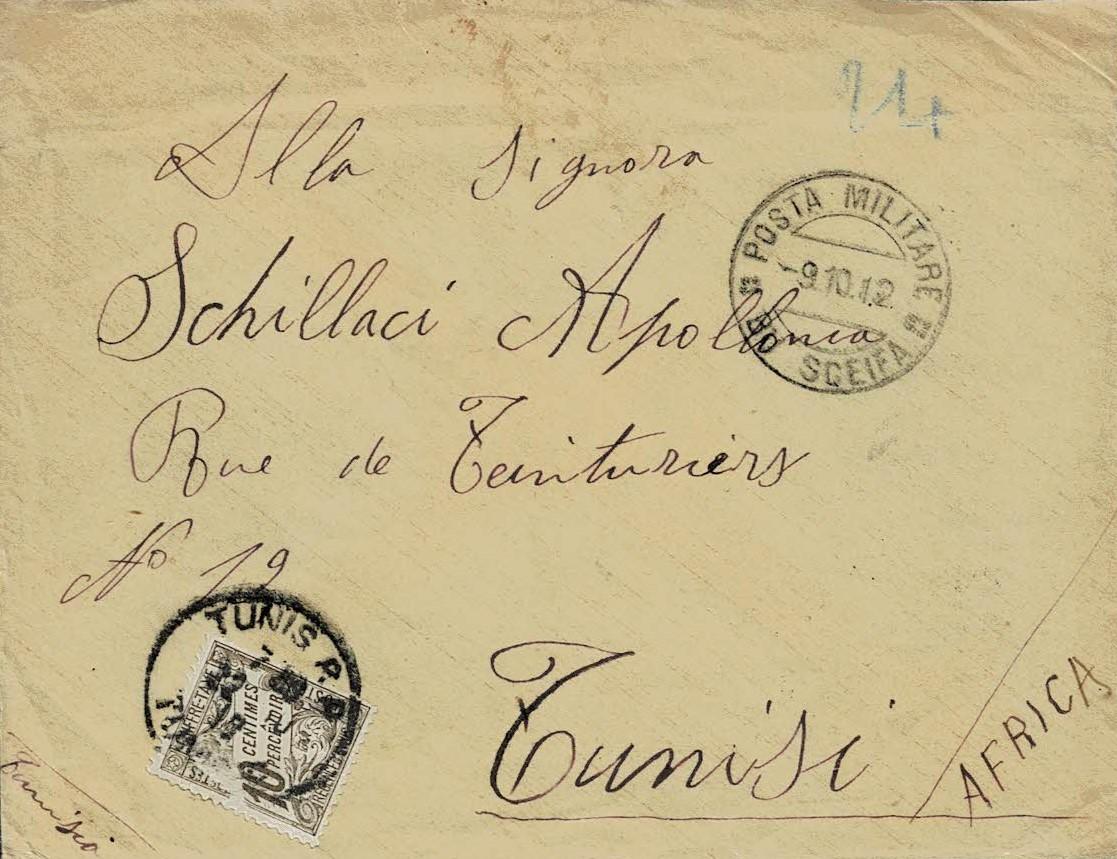 Alla Signora
Schillaci Apollonia
Rue de Teinturiers
No 19
Tunisi
AFRICA
Tunisia
POSTA MILITARE
-9.10.12
BU SCEIFA
TUNIS R.P.
CHIFFRE-TAXE
10 CENTIMES
À PERCEVOIR